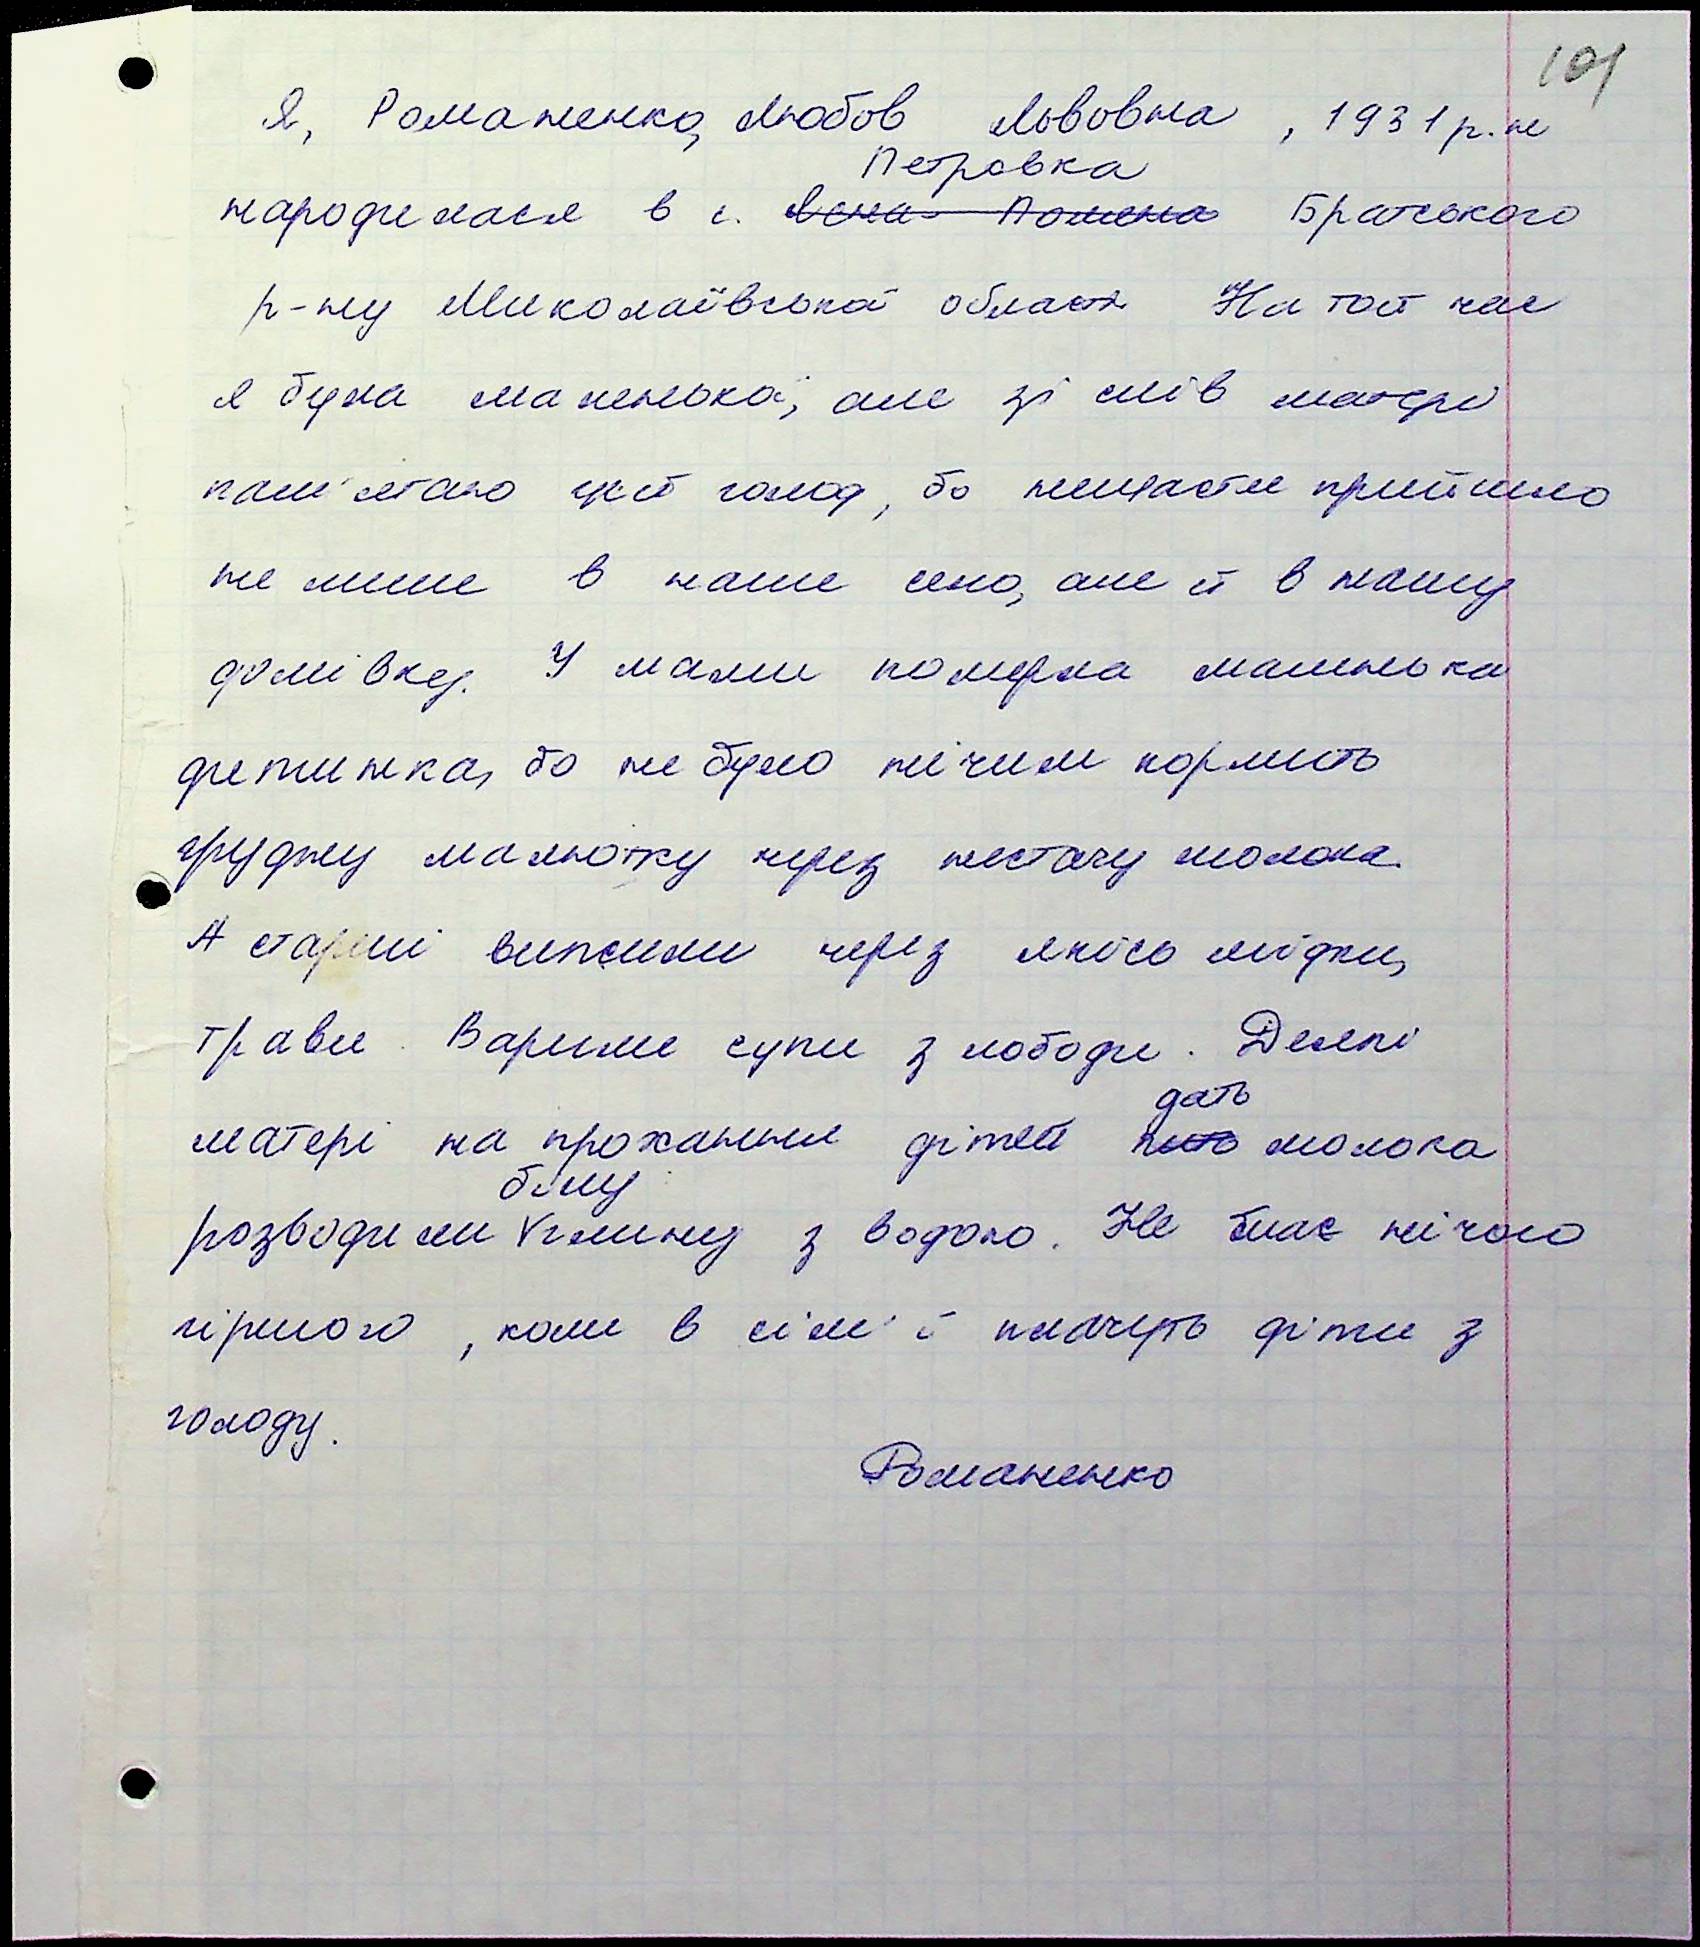 101
Я, Романенко, Любов Львовна, 1931 р.н
Петровка
народилася в с. Ясна Поляна Братського
р-ну Миколаївської області На той час
я була маленькой, але зі слів матері
пам'ятаю цей голод, бо нещастя прийшло
не лише в наше село, але й в нашу
домівку. У мами померла маленька
дитинка, бо не було нічим кормить
грудну мальотку через нестачу молока.
А старші вижили через якісь мідии,
трави. Варили супи з лободи. Деякі
дать
матері на прохання дітей пить молока
білу
розводили Vглину з водою. Не має нічого
гіршого, коли в сім'ї плачуть діти з
голоду.
Романенко